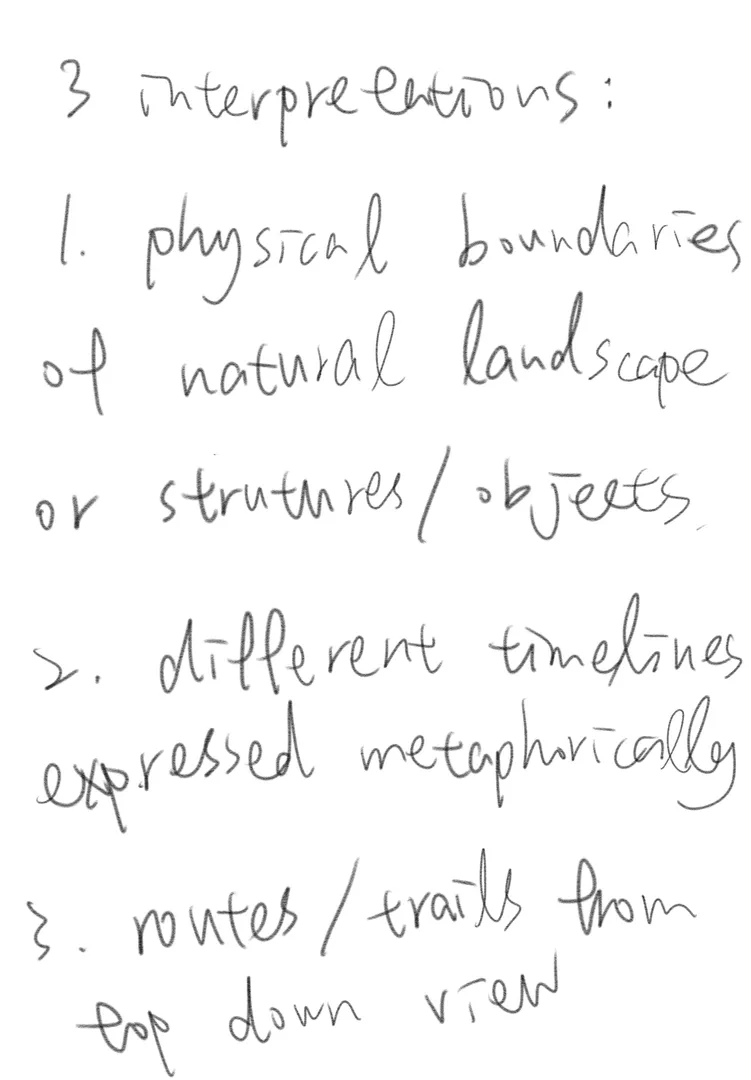 3 interpretations:
1. physical boundaries
of natural landscape
or strutures/objects.
2. different timelines
expressed metaphorically
3. routes/trails from
top down view